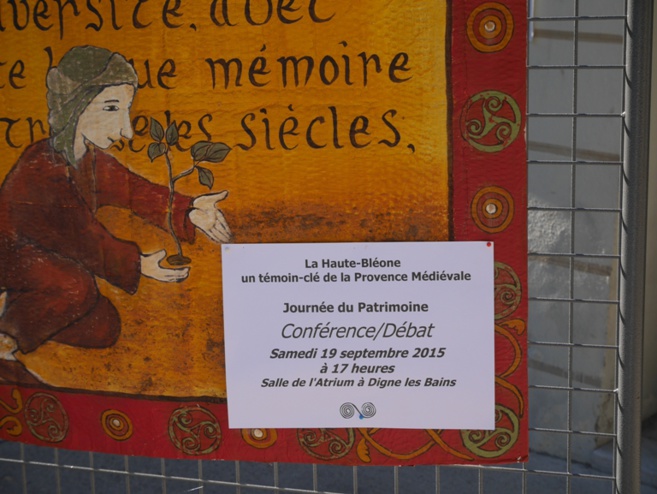 diversité, avec
que mémoire
siècles,
La Haute-Bléone
un témoin-clé de la Provence Médiévale
Journée du Patrimoine
Conférence/Débat
Samedi 19 septembre 2015
à 17 heures
Salle de l'Atrium à Digne les Bains